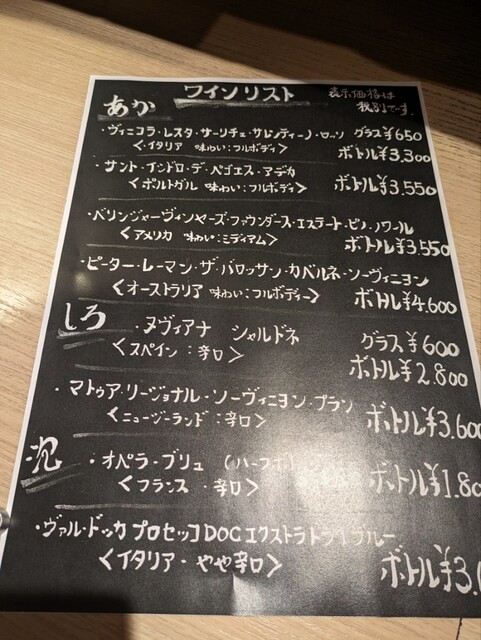 ワインリスト
表示価格は
税別です。
あか
・ヴィニコラ・レスタ・サーリチェ・サレンティーノ・ロッソ グラス¥650
<イタリア 味わい:フルボディ> ボトル¥3,300
・サント・イシドロ・デ・ペゴエス・アデガ
<ポルトガル 味わい:フルボディ> ボトル¥3,550
・ベリンジャーヴィンヤーズ・ファウンダース・エステート・ピノ・ノワール
<アメリカ 味わい:ミディアム> ボトル¥3,550
・ピーター・レーマン・ザ・バロッサン・カベルネ・ソーヴィニヨン
<オーストラリア 味わい:フルボディー> ボトル¥4,600
しろ
・ヌヴィアナ シャルドネ グラス¥600
<スペイン:辛口> ボトル¥2,800
・マトゥア・リージョナル・ソーヴィニヨン・ブラン
<ニュージーランド:辛口> ボトル¥3,600
泡
・オペラ・ブリュ (ハーフボ
<フランス・辛口> ボトル¥1,80
・ヴァル・ドッカ プロセッコDOCエクストラドライ ブルー
<イタリア・やや辛口> ボトル¥3,